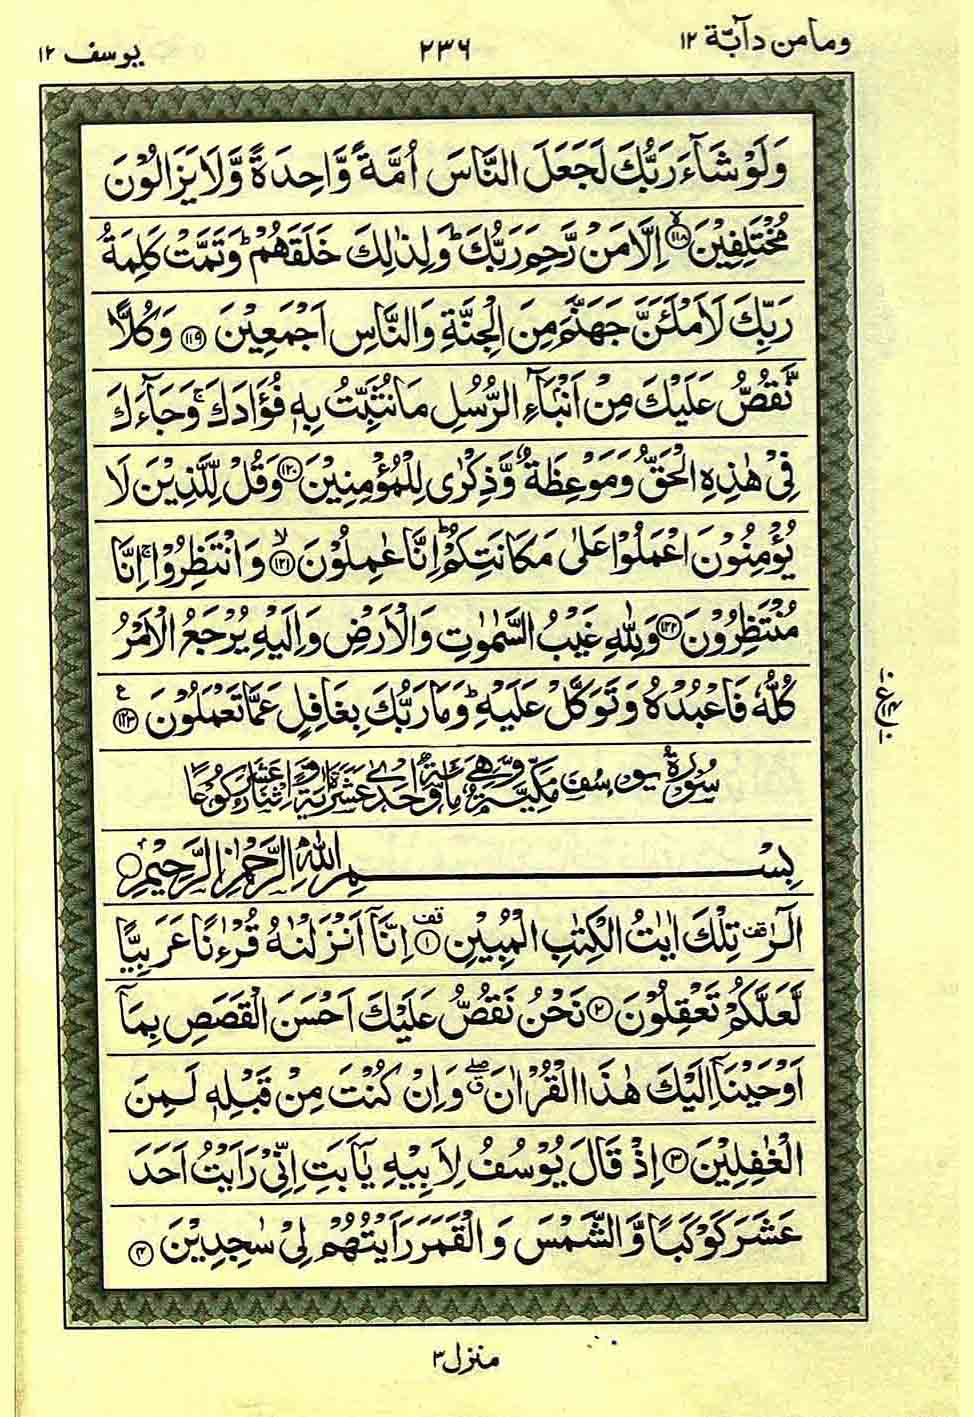 ومامن دآبّة ١٢
٢٣٦
يوسف ١٢
وَلَوْ شَآءَ رَبُّكَ لَجَعَلَ النَّاسَ اُمَّةً وَّاحِدَةً وَّلَا يَزَالُوْنَ
مُخْتَلِفِيْنَ ۙ‏﴿۱۱۸﴾ اِلَّا مَنْ رَّحِمَ رَبُّكَ ؕ وَلِذٰلِكَ خَلَقَهُمْ ؕ وَتَمَّتْ كَلِمَةُ
رَبِّكَ لَاَمْلَــَٔنَّ جَهَنَّمَ مِنَ الْجِنَّةِ وَالنَّاسِ اَجْمَعِيْنَ ﴿۱۱۹﴾ وَكُلًّا
نَّقُصُّ عَلَيْكَ مِنْ اَنْۢبَآءِ الرُّسُلِ مَا نُثَبِّتُ بِهٖ فُؤَادَكَ ۚ وَجَآءَكَ
فِىْ هٰذِهِ الْحَقُّ وَمَوْعِظَةٌ وَّذِكْرٰى لِلْمُؤْمِنِيْنَ ﴿۱۲۰﴾ وَقُلْ لِّلَّذِيْنَ لَا
يُؤْمِنُوْنَ اعْمَلُوْا عَلٰى مَكَانَتِكُمْ ؕ اِنَّا عٰمِلُوْنَ ۙ﴿۱۲۱﴾ وَانْتَظِرُوْا ۚ اِنَّا
مُنْتَظِرُوْنَ ﴿۱۲۲﴾ وَلِلّٰهِ غَيْبُ السَّمٰوٰتِ وَالْاَرْضِ وَاِلَيْهِ يُرْجَعُ الْاَمْرُ
كُلُّهٗ فَاعْبُدْهُ وَتَوَكَّلْ عَلَيْهِ ؕ وَمَا رَبُّكَ بِغَافِلٍ عَمَّا تَعْمَلُوْنَ ﴿۱۲۳﴾ ع
سُوْرَةُ يُوْسُفَ مَكِّيَّةٌ وَّهِيَ مِائَةٌ وَّاِحْدٰى عَشَرَةَ اٰيَةً وَّاثْنَا عَشَرَ رُكُوْعًا
بِسْمِ اللّٰهِ الرَّحْمٰنِ الرَّحِيْمِ
الٓرٰ قف تِلْكَ اٰيٰتُ الْكِتٰبِ الْمُبِيْنِ قف ﴿۱﴾ اِنَّاۤ اَنْزَلْنٰهُ قُرْءٰنًا عَرَبِيًّا
لَّعَلَّكُمْ تَعْقِلُوْنَ ﴿۲﴾ نَحْنُ نَقُصُّ عَلَيْكَ اَحْسَنَ الْقَصَصِ بِمَاۤ
اَوْحَيْنَاۤ اِلَيْكَ هٰذَا الْقُرْاٰنَ ۖق وَاِنْ كُنْتَ مِنْ قَبْلِهٖ لَمِنَ
الْغٰفِلِيْنَ ﴿۳﴾ اِذْ قَالَ يُوْسُفُ لِاَبِيْهِ يٰۤاَبَتِ اِنِّىْ رَاَيْتُ اَحَدَ
عَشَرَ كَوْكَبًا وَّالشَّمْسَ وَالْقَمَرَ رَاَيْتُهُمْ لِىْ سٰجِدِيْنَ ﴿۴﴾
منزل ٣